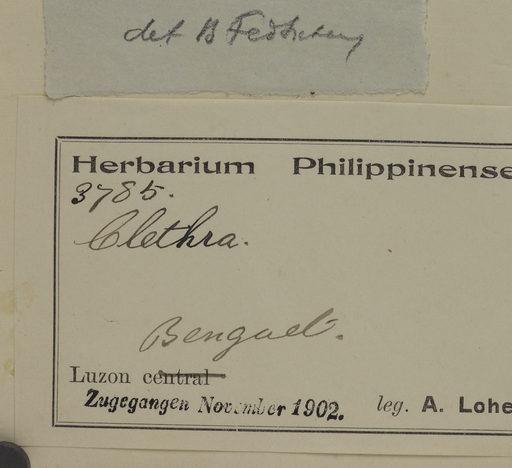 det B Fedtschenko
Herbarium Philippinense
3785.
Clethra.
Benguet.
Luzon central
Zugegangen November 1902. leg. A. Lohe